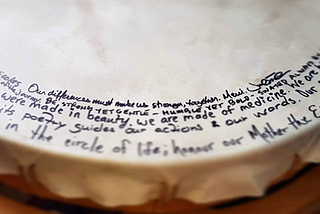 Our differences must make us stronger, together.
BE STRONG YET GENTLE - HUMBLE YET BOLD -
were made in beauty, we are made of medicine. We are
its poetry guides our actions & our words. Our
in the circle of life; honour our Mother the E